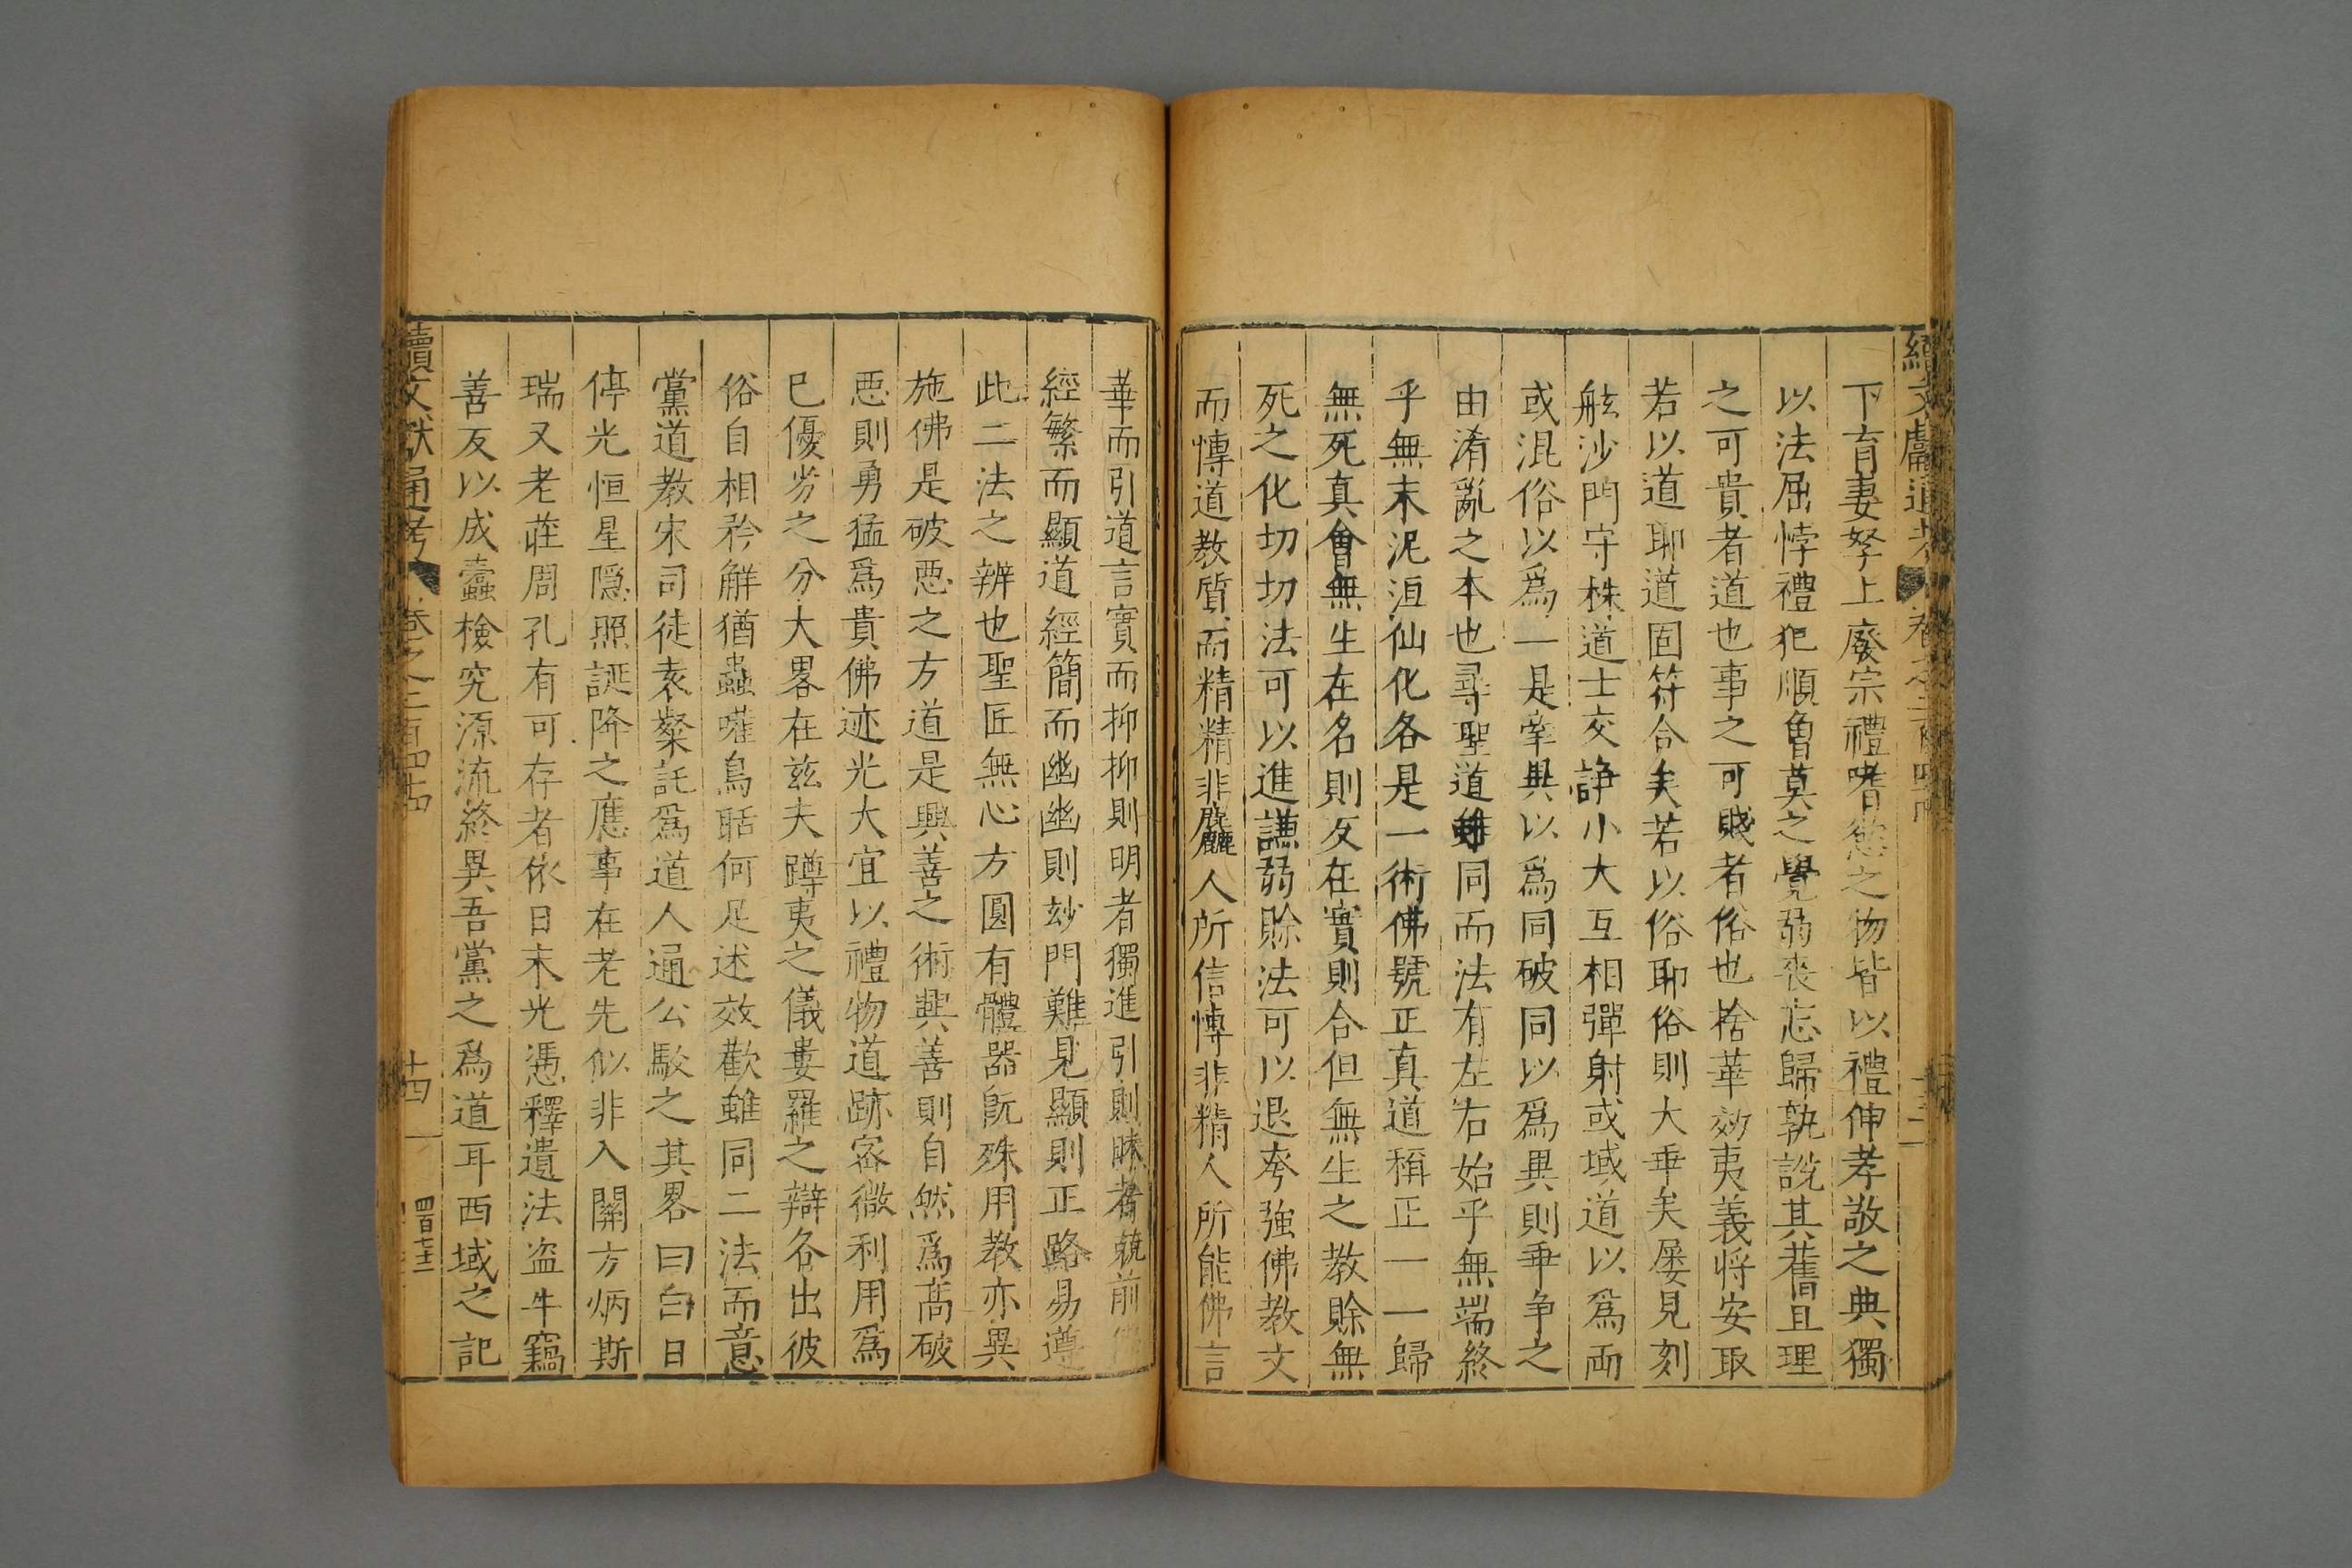 續文獻通考 卷之二百四十四 十三
下育妻孥上廢宗禮嗜慾之物皆以禮伸孝敬之典獨
以法屈悖禮犯順曾莫之覺弱喪忘歸孰說其舊且理
之可貴者道也事之可賤者俗也捨華效夷義將安取
若以道耶道固符合矣若以俗耶俗則大乖矣屡見刻
舷沙門守株道士交諍小大互相彈射或域道以爲両
或混俗以爲一是牽異以爲同破同以爲異則乖争之
由淆亂之本也尋聖道雖同而法有左右始乎無端終
乎無末泥洹仙化各是一術佛號正真道稱正一一歸
無死真會無生在名則反在實則合但無生之教賖無
死之化切切法可以進謙弱賖法可以退夸強佛教文
而博道教質而精精非麤人所信博非精人所能佛言
華而引道言實而抑抑則明者獨進引則昧者競前佛
經繁而顯道經簡而幽幽則玅門難見顯則正路易遵
此二法之辨也聖匠無心方圓有體器旣殊用教亦異
施佛是破惡之方道是興善之術興善則自然爲髙破
惡則勇猛爲貴佛迹光大宜以禮物道跡宻微利用爲
已優劣之分大畧在兹夫蹲夷之儀婁羅之辯各出彼
俗自相矜解猶蟲嚾鳥聒何足述效歡雖同二法而意
黨道教宋司徒袁粲託爲道人通公駁之其畧曰白日
停光恒星隱照誕降之應事在老先似非入關方炳斯
瑞又老莊周孔有可存者依日末光憑釋遺法盗牛竊
善反以成蠹檢究源流終異吾黨之爲道耳西域之記
續文獻通考 卷之二百四十四 十四 四百七十二